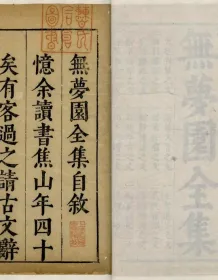 無夢園全集自敘
憶余讀書焦山年四十
矣有客過之請古文辭
無夢園全集